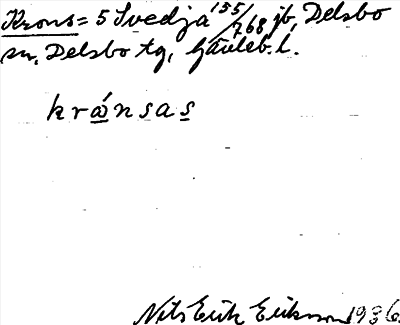 Krons = 5 Svedja 155/768 jb, Delsbo
sn, Delsbo tg, Gävleb. l.
krånsas
Nils Erik Erikson 1936.